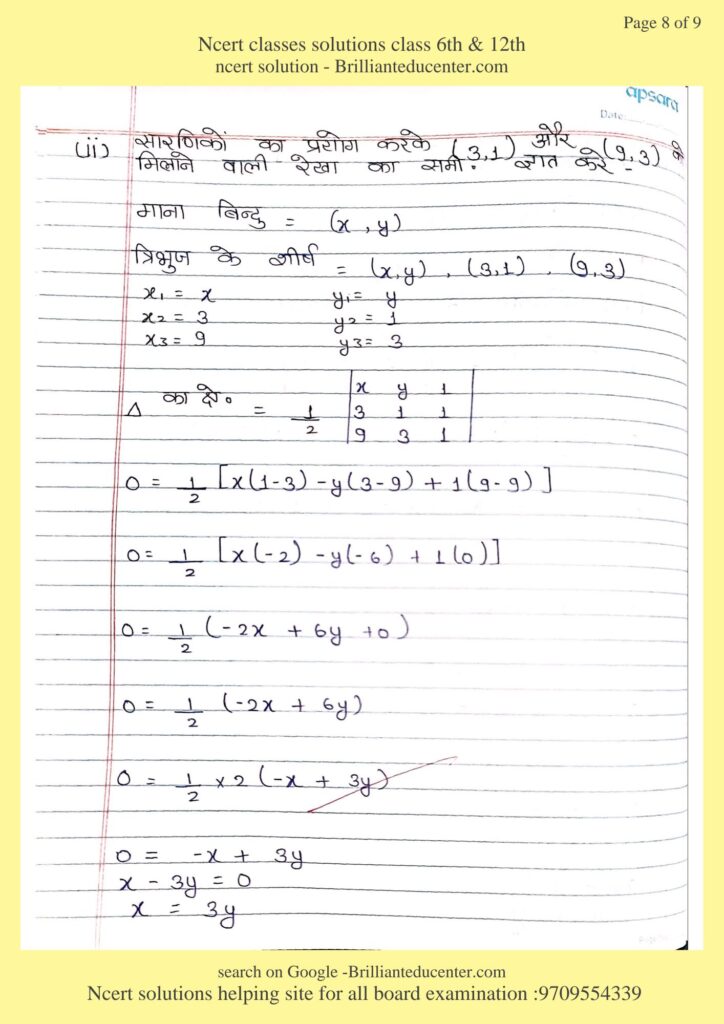 Page 8 of 9
Ncert classes solutions class 6th & 12th
ncert solution - Brillianteducenter.com
apsara
Date:
(ii) सारणिकों का प्रयोग करके (3,1) और (9,3) को
मिलाने वाली रेखा का समी॰ ज्ञात करे -
माना बिन्दु = (x , y)
त्रिभुज के शीर्ष = (x,y) , (3,1) , (9,3)
x₁ = x y₁ = y
x₂ = 3 y₂ = 1
x₃ = 9 y₃ = 3
△ का क्षे॰ = 1/2 |x y 1|
|3 1 1|
|9 3 1|
0 = 1/2 [x(1-3) -y(3-9) + 1(9-9)]
0 = 1/2 [x(-2) -y(-6) + 1(0)]
0 = 1/2 (-2x + 6y +0)
0 = 1/2 (-2x + 6y)
0 = 1/2 x 2 (-x + 3y)
0 = -x + 3y
x - 3y = 0
x = 3y
search on Google -Brillianteducenter.com
Ncert solutions helping site for all board examination :9709554339